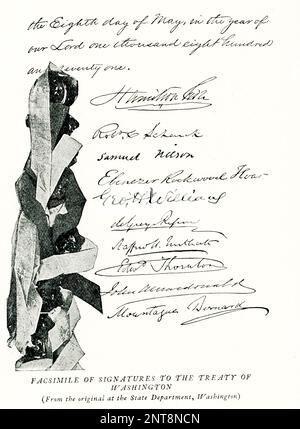 the Eighth day of May, in the year of
our Lord one thousand eight hundred
and seventy one.
Hamilton Fish
Robt. C. Schenck
Samuel Nelson
Ebenezer Rockwood Hoar
Geo H Williams
de Grey & Ripon
Stafford H. Northcote
Edwd. Thornton
John A Macdonald
Mountague Bernard
FACSIMILE OF SIGNATURES TO THE TREATY OF
WASHINGTON
(From the original at the State Department, Washington)
alamy
Image ID: 2NT8NCN
www.alamy.com